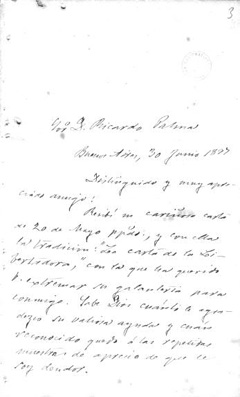 3
Sor D. Ricardo Palma
Buenos Aires, 30 Junio 1897
Distinguido y muy apre-
ciado amigo:
Recibí su cariñosa carta
de 20 de Mayo ppdo., y con ella
la tradicion: "La carta de la Li-
bertadora," con la que ha querido
V. extremar su galantería para
conmigo. Sabe Dios cuánto le agra-
dezco su valiosa ayuda y cuán
reconocido quedo á las repetidas
muestras de aprecio de que le
soy deudor.